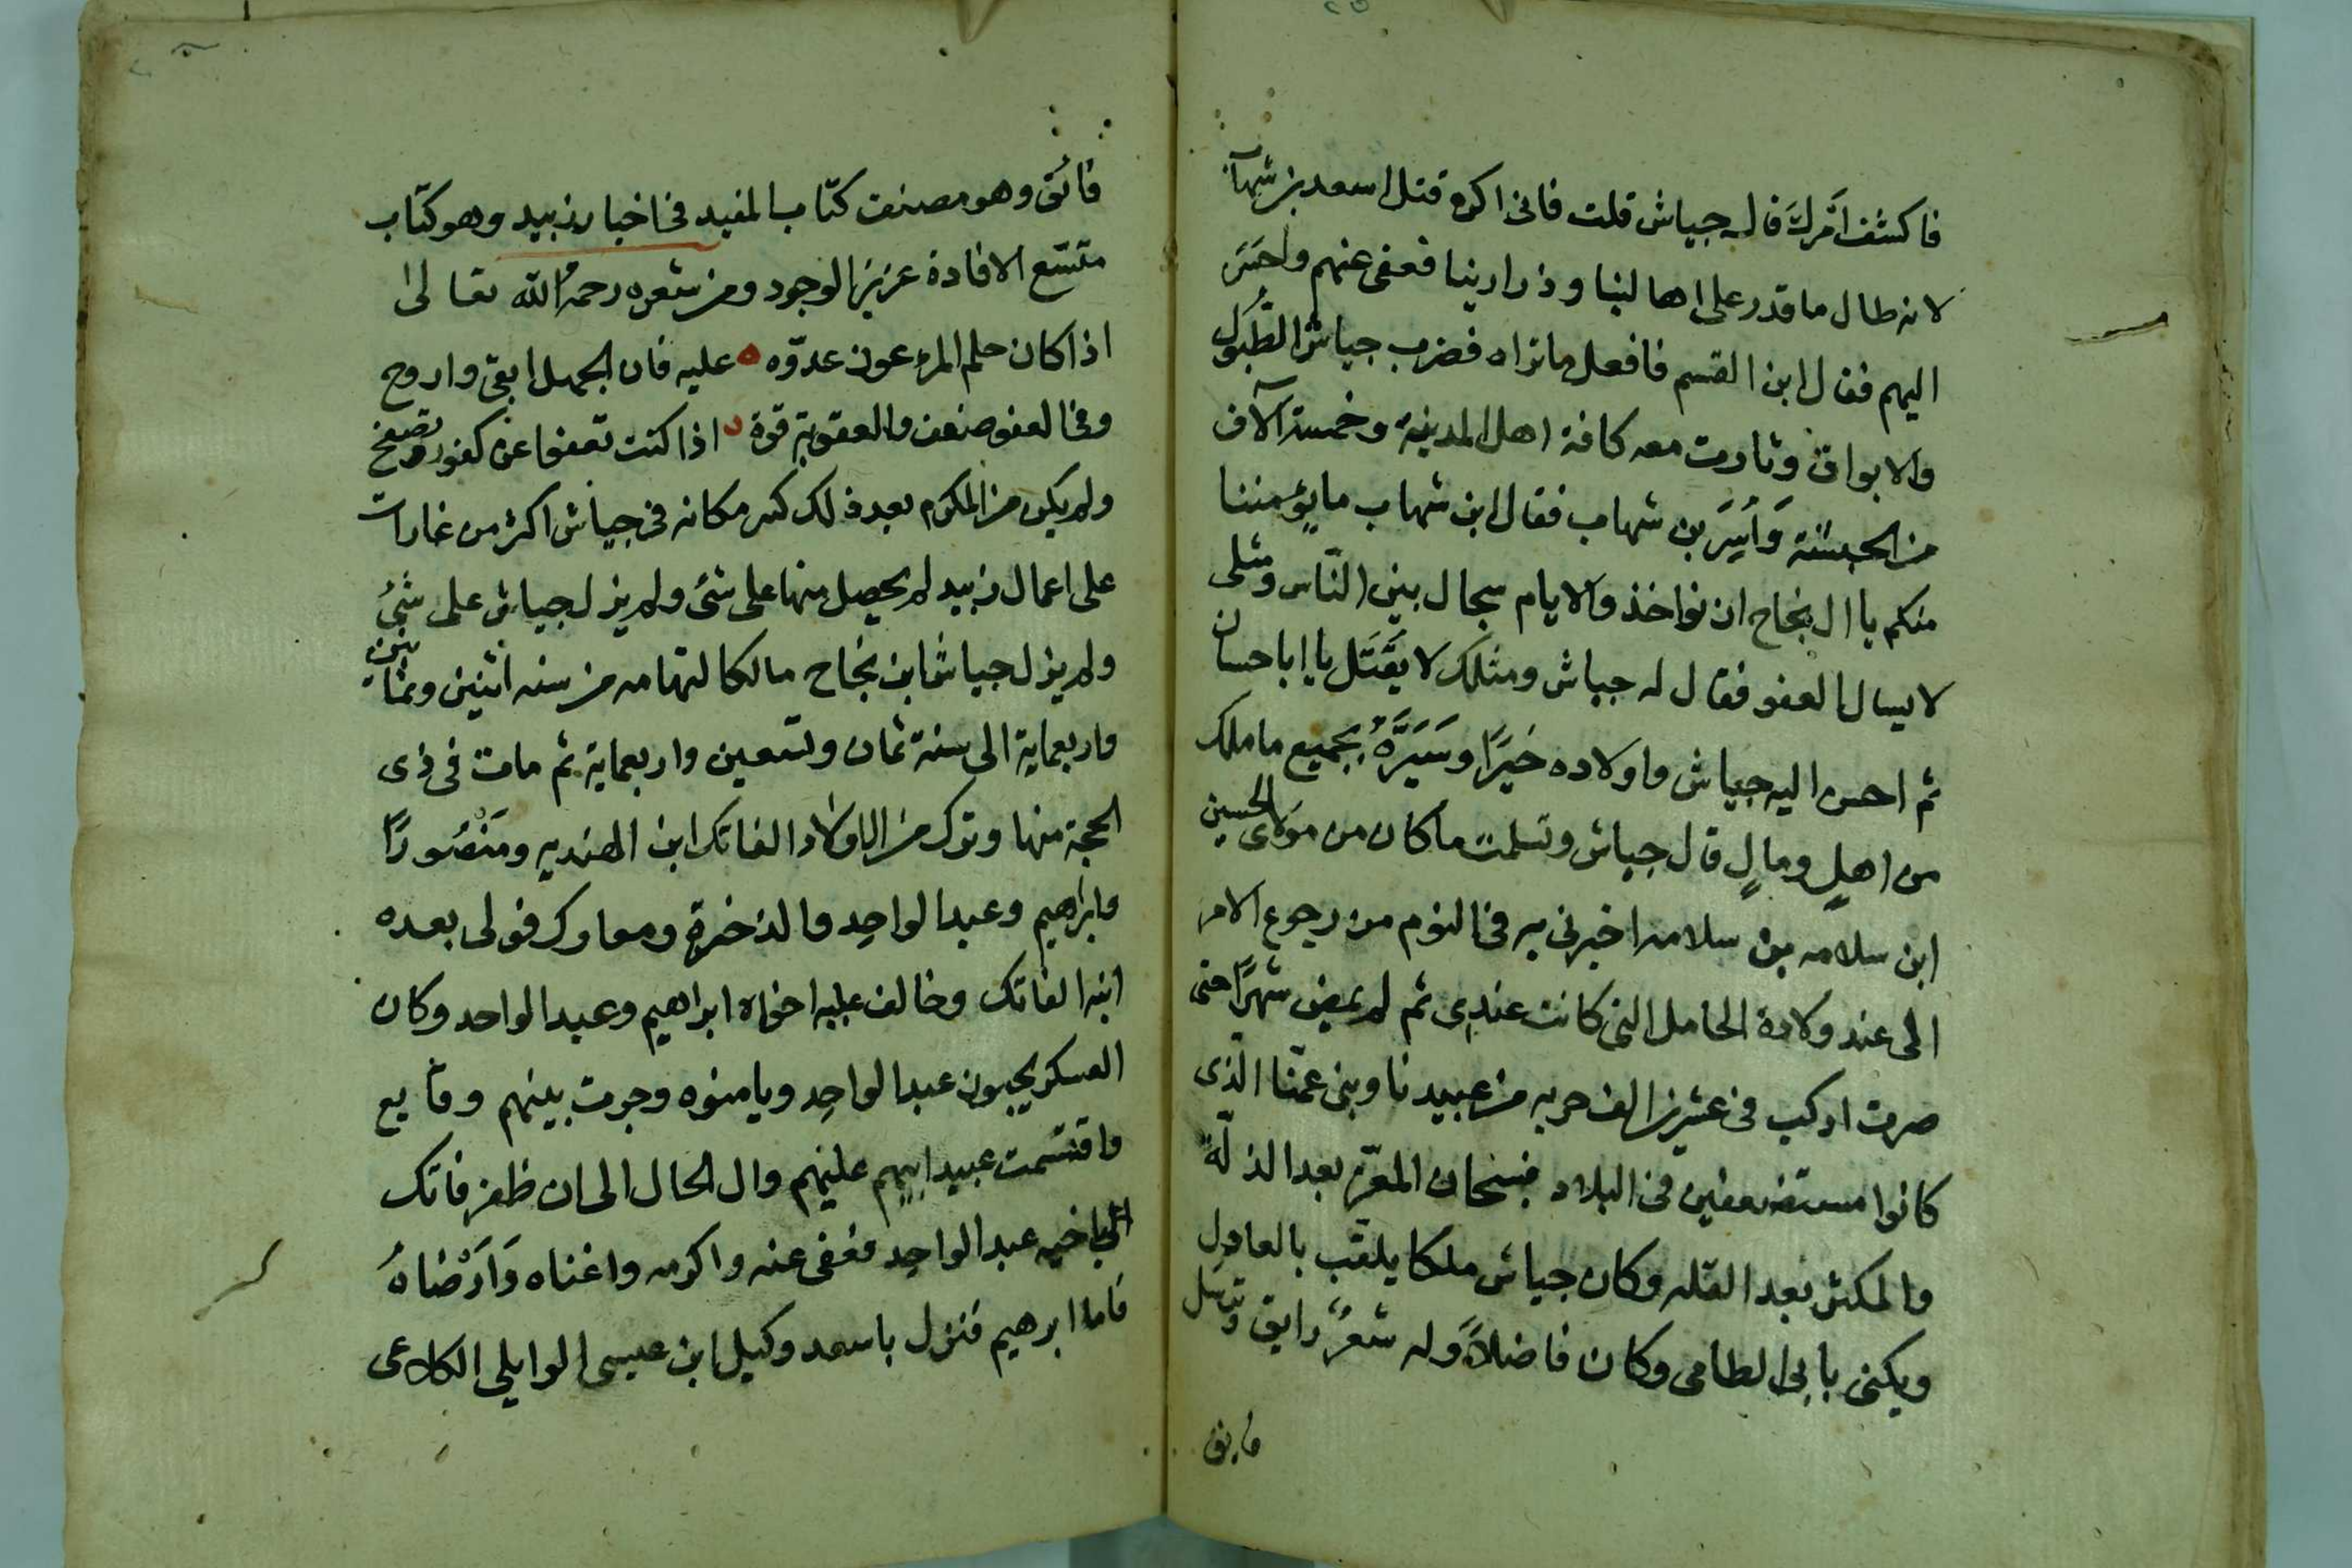 فاكشف امرك قال جياش قلت فانى اكره قتل اسعد بن شهاب
لانه طال ما قدر على اهالينا وذرارينا فعفى عنهم واحسن
اليهم فقال ابن القسم فافعل ما تراه فضرب جياش الطبول
والابواق وثارت معه كافة اهل المدينة وخمسة آلاف
من الحبشة وَأُسِرَ بن شهاب فقال ابن شهاب ما يؤمننا
منكم يا ال نجاح ان نواخذ والايام سجال بين الناس ومثلى
لا يسال العفو فقال له جياش ومثلك لا يقتل يا ابا حسان
ثم احسن اليه جياش واولاده خيرًا وسَيَّرَهُ بجميع ما ملك
من اهلٍ ومالٍ قال جياش وتسلمت ما كان من مولاى الحسين
ابن سلامه بن سلامه اخبرنى به فى النوم من رجوع الامر
الى عند ولادة الحامل التى كانت عندى ثم لم يمض شهرًا حتى
صرت اركب فى عشرين الف حربه من عبيدنا وبنى عمّنا الّذى
كانوا مستضعفين فى البلاد فسبحان المعزّ بعد الذلّة
والمكثر بعد القله وكان جياش ملكا يلقّب بالعادل
ويكنى بابى الطامى وكان فاضلاً وله شعرٌ رايق وترسل
فايق
فائق وهو مصنف كتاب المفيد فى اخبار زبيد وهو كتاب
متسّع الافادة عزيز الوجود ومن شعره رحمه الله تعالى
اذا كان حلم المرء عون عدوّه ه عليه فان الجهل ابقى واروح
وفى العفو ضعف والعقوبة قوة ه اذا كنت تعفوا عن كفور وتصفح
ولم يكن من المكرم بعد ذلك كسر مكانه فى جياش اكثر من غارات
على اعمال زبيد لم يحصل منها على شئ ولم يزل جياش على شئ
ولم يزل جياش ابن نجاح مالكا لتهامه من سنه اثنين وثمانين
واربعماية الى سنة ثمان وتسعين واربعماية ثم مات فى ذى
الحجة منها وترك من الاولاد الفاتك ابن الهنديه ومَنْصُورًا
وابراهيم وعبد الواحد والذخرة ومعارك فولى بعده
ابنه الفاتك وخالف عليه اخواه ابراهيم وعبد الواحد وكان
العسكر يحبون عبد الواحد ويامنوه وجرت بينهم وقايع
واقتسمت عبيد ابيهم عليهم وال الحال الى ان ظفر فاتك
باخيه عبد الواحد فعفى عنه واكرمه واغناه وَارَضاهُ
فاما ابرهيم فنزل باسعد وكيل ابن عيسى الوايلى الكلاعى